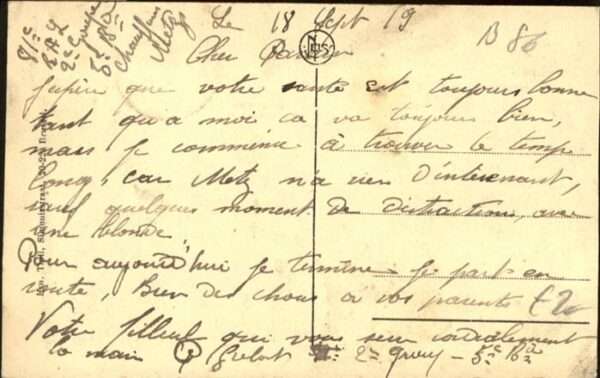 Le 18 Sept 19
81e
R.A.L
2e Groupe
5e Bie
Chauffeur
Metz
B 86
Cher Parrain
J'espère que votre santé est toujours bonne
tant qu'a moi ca va toujours bien,
mais je commence à trouver le temps
long, car Metz n'a rien d'intéressant,
sauf quelques moment de distraction, avec
une blonde.
Pour aujourd'hui je termine je part en
route, Bien des choses a vos parents
Votre filleul qui vous serre cordialement
la main 2e Group - 5e Bie